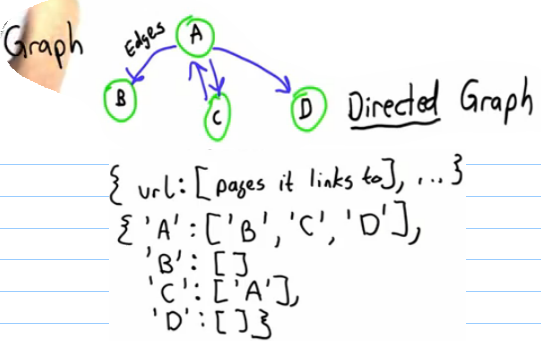 Graph
Edges
A
B
C
D
Directed Graph
{ url: [pages it links to], ... }
{ 'A': ['B', 'C', 'D'],
'B': []
'C': ['A'],
'D': [] }